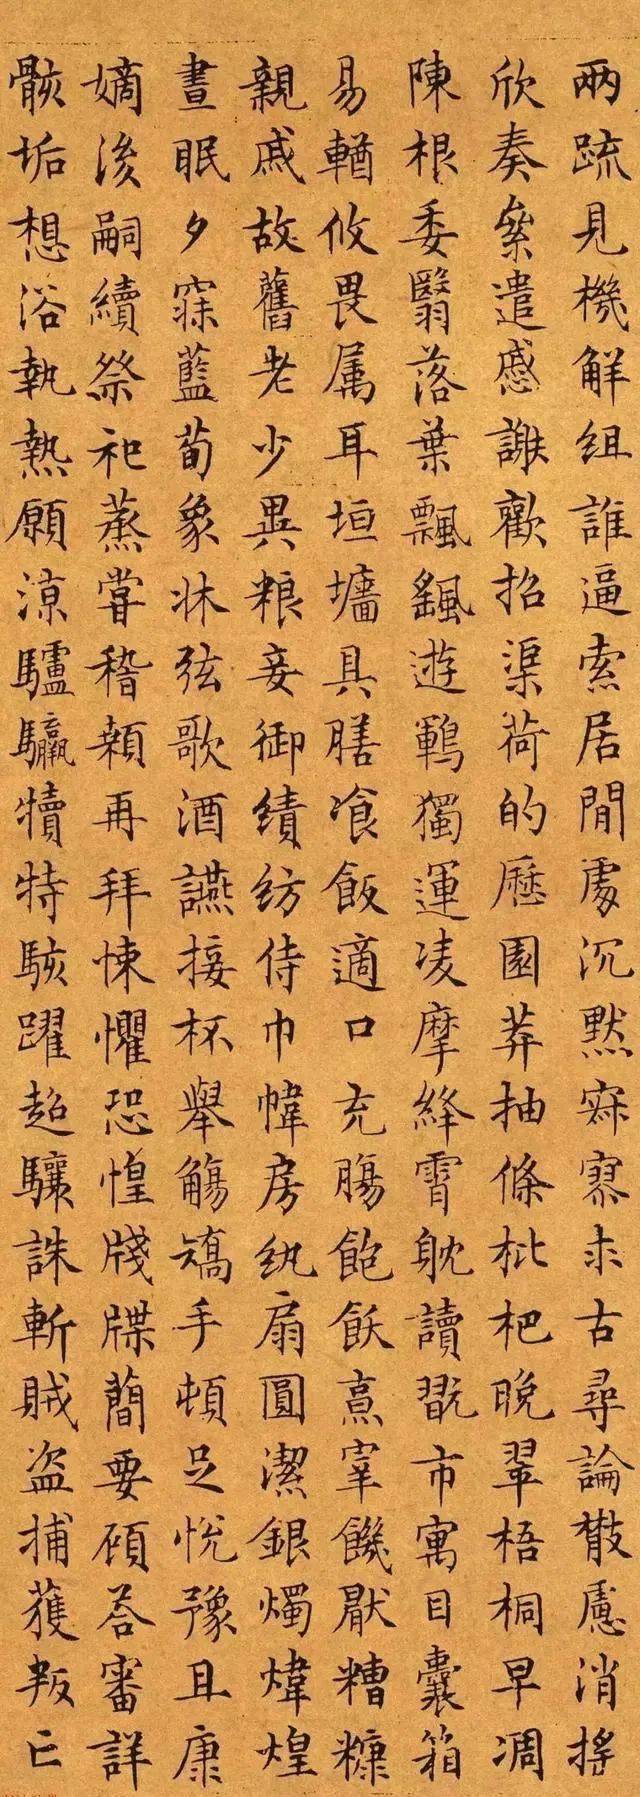 兩疏見機解組誰逼索居閒處沉默寂寥求古尋論散慮消搖
欣奏絫遣慼謝歡招渠荷的歷園莽抽條枇杷晚翠梧桐早凋
陳根委翳落葉飄颻遊鵾獨運凌摩絳霄躭讀翫市寓目囊箱
易輶攸畏属耳垣墻具膳飡飯適口充腸飽飫烹宰饑厭糟糠
親戚故舊老少異粮妾御績紡侍巾幃房紈扇圓潔銀燭煒煌
晝眠夕寐藍筍象牀弦歌酒讌接杯舉觴矯手頓足悅豫且康
嫡後嗣續祭祀蒸嘗稽顙再拜悚懼恐惶牋牒簡要顧答審詳
骸垢想浴執熱願涼驢驘犢特駭躍超驤誅斬賊盜捕獲叛亡